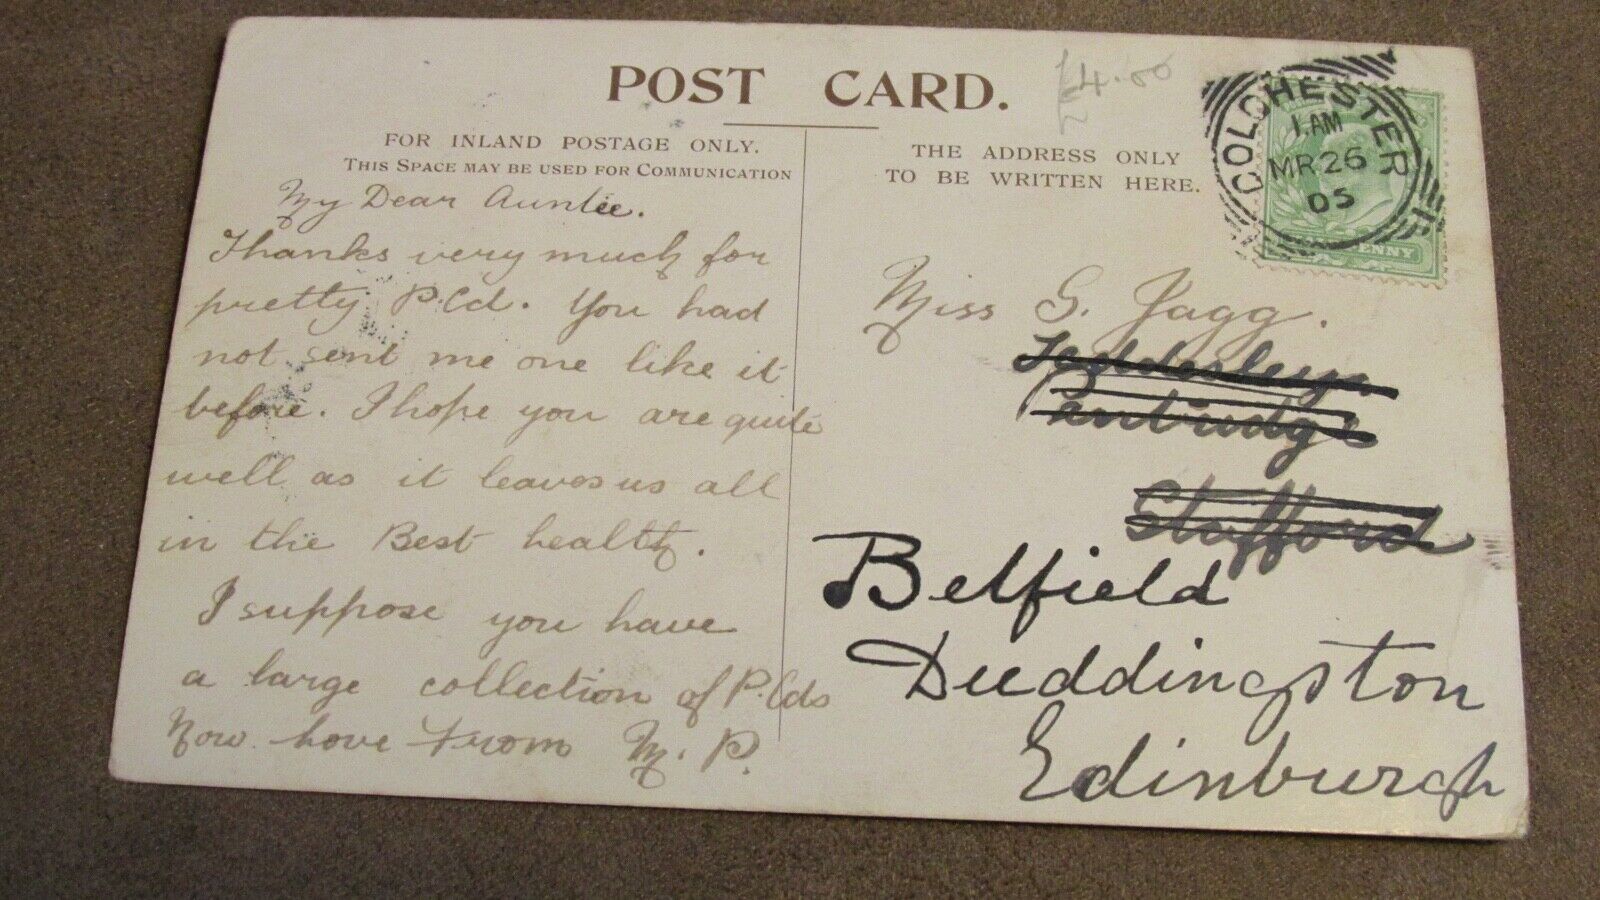 POST CARD.
4.00
FOR INLAND POSTAGE ONLY.
THIS SPACE MAY BE USED FOR COMMUNICATION
My Dear Auntie.
Thanks very much for
pretty P.Cd. You had
not sent me one like it
before. I hope you are quite
well as it leaves us all
in the Best health.
I suppose you have
a large collection of P.Cds
Now. love from M. P.
THE ADDRESS ONLY
TO BE WRITTEN HERE.
COLCHESTER
1. AM
MR 26
05
PENNY
Miss G. Jagg.
Penkridge
Stafford
Belfield
Duddingston
Edinburgh